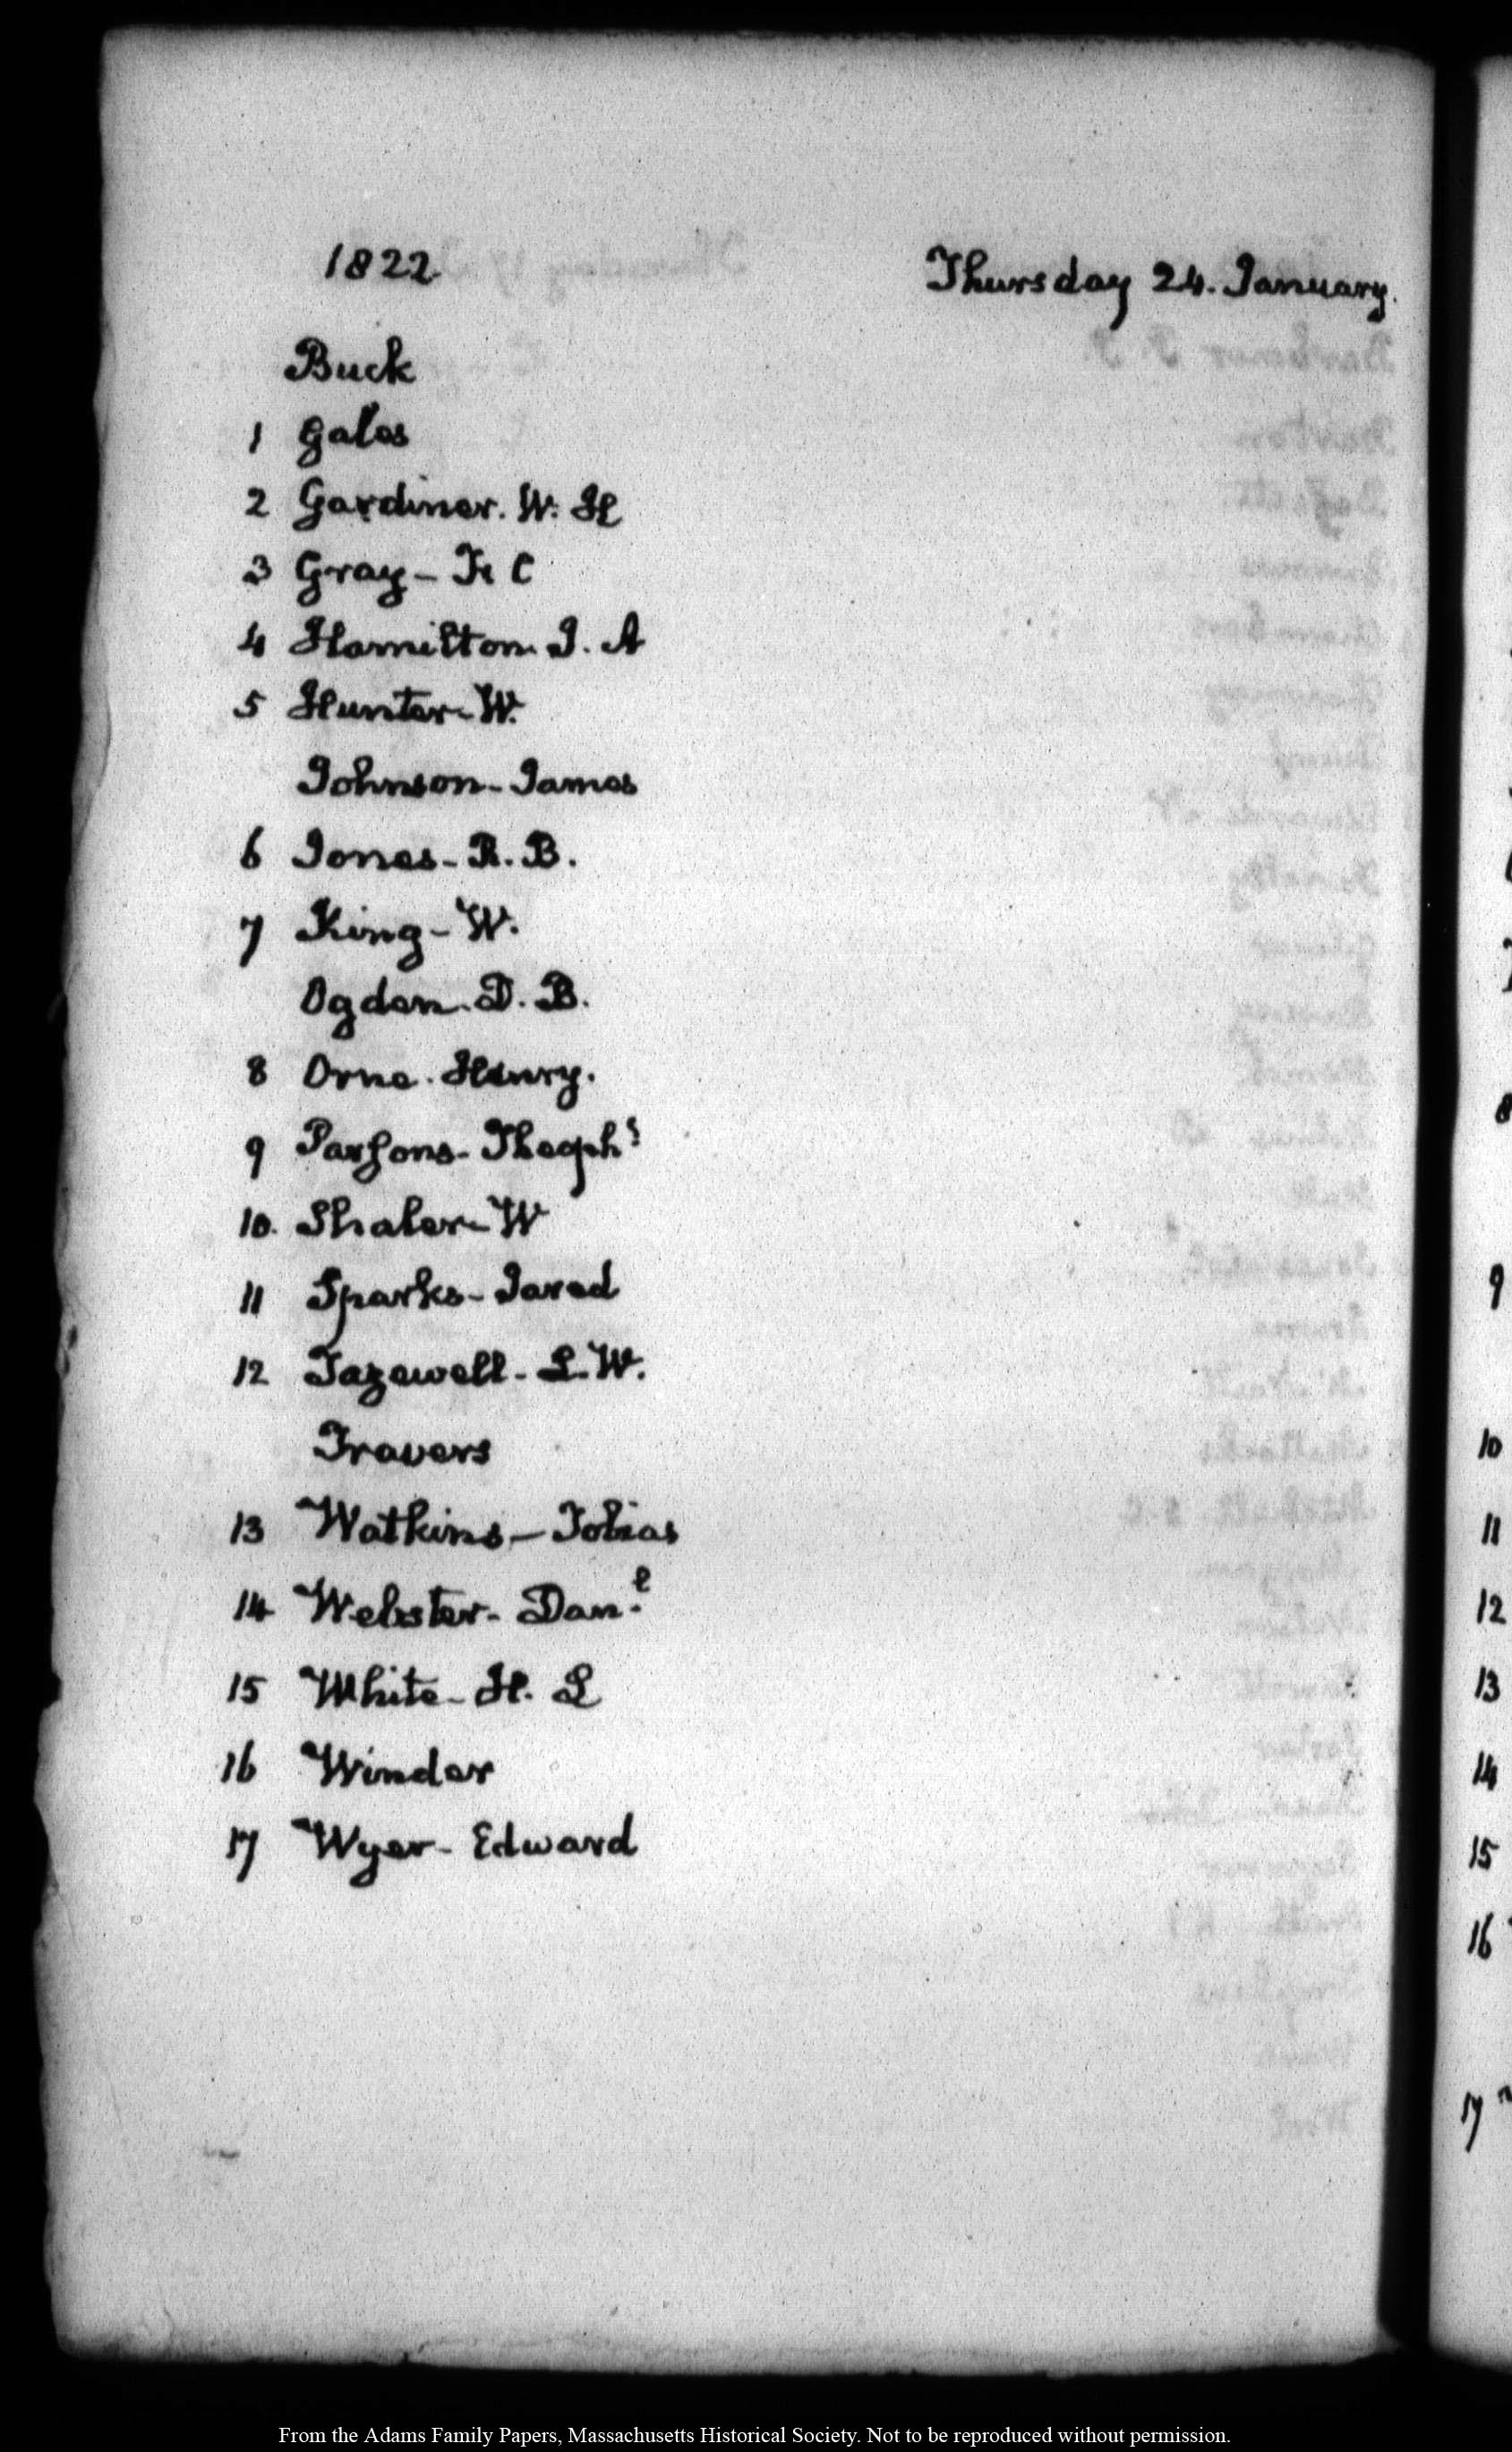 1822
Thursday 24. January.
Buck
1 Gales
2 Gardiner. W. H
3 Gray - F. C
4 Hamilton. J. A
5 Hunter - W.
Johnson - James
6 Jones - R. B.
7 King - W.
Ogden. D. B.
8 Orne. Henry.
9 Parsons - Theoph.s
10. Shaler - W
11 Sparks - Jared
12 Tazewell - L. W.
Travers
13 Watkins - Tobias
14 Webster - Dan.l
15 White - H. L
16 Winder
17 Wyer - Edward
8
9
10
11
12
13
14
15
16
17
From the Adams Family Papers, Massachusetts Historical Society. Not to be reproduced without permission.